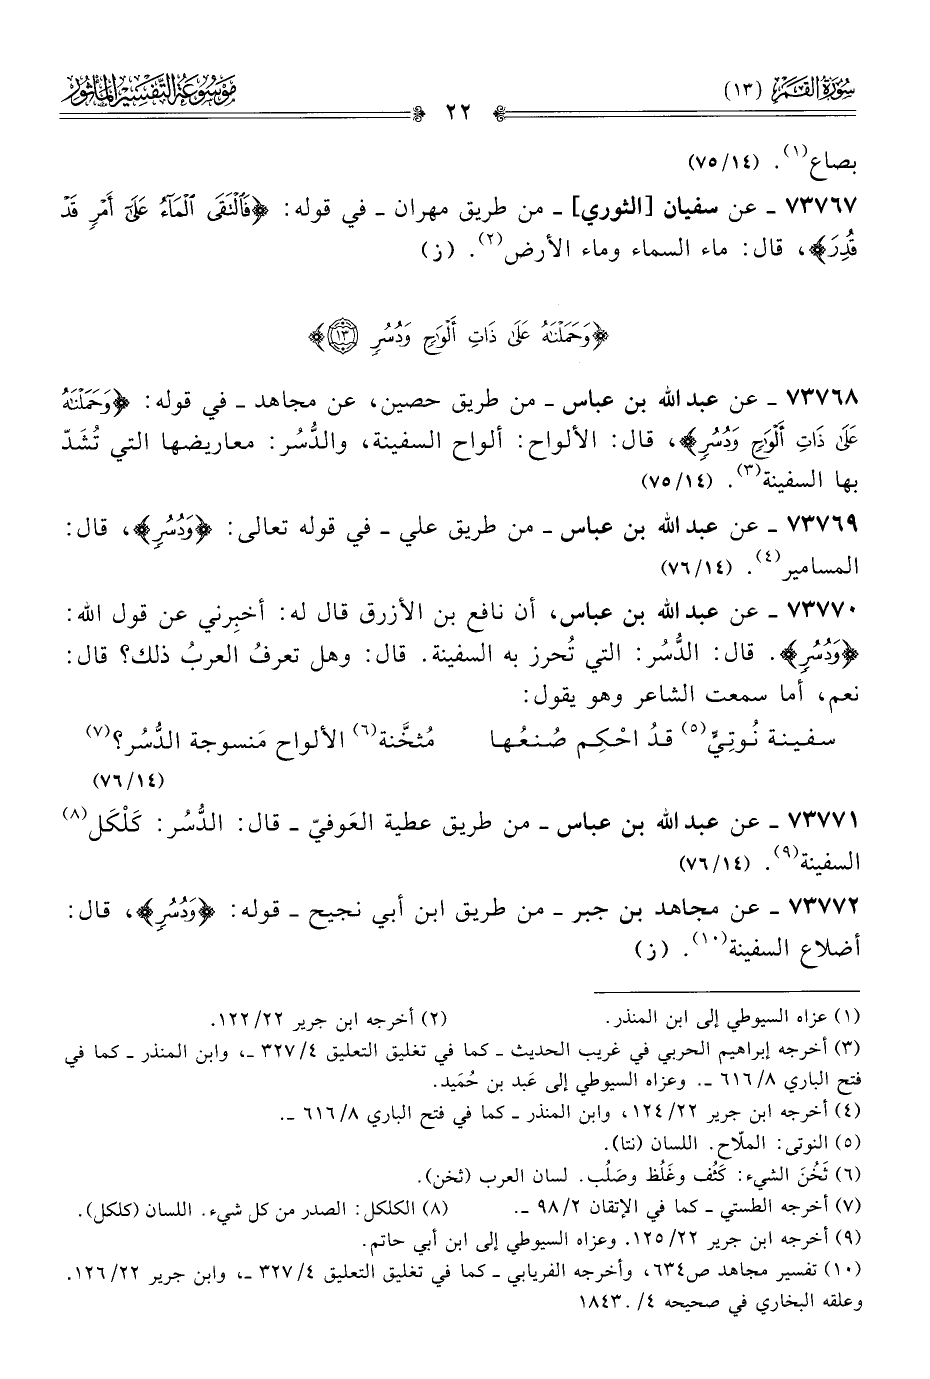 سورة القمر (١٣)
موسوعة التفسير المأثور
٢٢
بصاع(١). (٧٥/١٤)
٧٣٧٦٧ ـ عن سفيان [الثوري] ـ من طريق مهران ـ في قوله: ﴿فَٱلْتَقَى ٱلْمَآءُ عَلَىٰٓ أَمْرٍ قَدْ
قُدِرَ﴾، قال: ماء السماء وماء الأرض(٢). (ز)
﴿وَحَمَلْنَٰهُ عَلَىٰ ذَاتِ أَلْوَٰحٍ وَدُسُرٍ ١٣﴾
٧٣٧٦٨ ـ عن عبد الله بن عباس ـ من طريق حصين، عن مجاهد ـ في قوله: ﴿وَحَمَلْنَٰهُ
عَلَىٰ ذَاتِ أَلْوَٰحٍ وَدُسُرٍ﴾، قال: الألواح: ألواح السفينة، والدُّسُر: معاريضها التي تُشَدّ
بها السفينة(٣). (٧٥/١٤)
٧٣٧٦٩ ـ عن عبد الله بن عباس ـ من طريق علي ـ في قوله تعالى: ﴿وَدُسُرٍ﴾، قال:
المسامير(٤). (٧٦/١٤)
٧٣٧٧٠ ـ عن عبد الله بن عباس، أن نافع بن الأزرق قال له: أخبِرني عن قول الله:
﴿وَدُسُرٍ﴾. قال: الدُّسُر: التي تُحرز به السفينة. قال: وهل تعرفُ العربُ ذلك؟ قال:
نعم، أما سمعت الشاعر وهو يقول:
سفينة نُوتِيٍّ(٥) قدُ احْكِم صُنعُها مُثخَّنة(٦) الألواح مَنسوجة الدُّسُر؟(٧)
(٧٦/١٤)
٧٣٧٧١ ـ عن عبد الله بن عباس ـ من طريق عطية العَوفيّ ـ قال: الدُّسُر: كَلْكَل(٨)
السفينة(٩). (٧٦/١٤)
٧٣٧٧٢ ـ عن مجاهد بن جبر ـ من طريق ابن أبي نجيح ـ قوله: ﴿وَدُسُرٍ﴾، قال:
أضلاع السفينة(١٠). (ز)
(١) عزاه السيوطي إلى ابن المنذر. (٢) أخرجه ابن جرير ١٢٢/٢٢.
(٣) أخرجه إبراهيم الحربي في غريب الحديث ـ كما في تغليق التعليق ٣٢٧/٤ ـ، وابن المنذر ـ كما في
فتح الباري ٦١٦/٨ ـ. وعزاه السيوطي إلى عَبد بن حُمَيد.
(٤) أخرجه ابن جرير ١٢٤/٢٢، وابن المنذر ـ كما في فتح الباري ٦١٦/٨ ـ.
(٥) النوتى: الملّاح. اللسان (نتا).
(٦) ثَخُنَ الشيء: كَثُف وغَلُظ وصَلُب. لسان العرب (ثخن).
(٧) أخرجه الطستي ـ كما في الإتقان ٩٨/٢ ـ. (٨) الكلكل: الصدر من كل شيء. اللسان (كلكل).
(٩) أخرجه ابن جرير ١٢٥/٢٢. وعزاه السيوطي إلى ابن أبي حاتم.
(١٠) تفسير مجاهد ص٦٣٤، وأخرجه الفريابي ـ كما في تغليق التعليق ٣٢٧/٤ ـ، وابن جرير ١٢٦/٢٢.
وعلقه البخاري في صحيحه ٤/ ١٨٤٣.